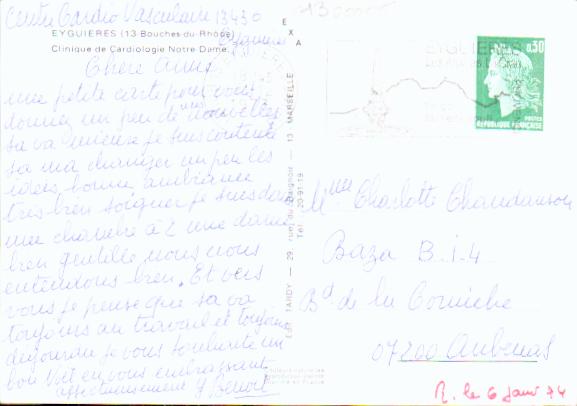 Centre Cardio Vasculaire 13430
Eyguieres
EYGUIERES (13 Bouches-du-Rhône)
Clinique de Cardiologie Notre Dame.
Chere Amie
une petite carte pour vous
donner un peu de nos nouvelles
sa va mieux je suis contente
sa ma changer un peu les
idees bonne ambiance
tres bien soigner je suis dans
une chambre à 2 une dame
bien gentille nous nous
entendons bien. Et vers
vous je pense que sa va
toujours au travail et toujours
je vous souhaite un
bon en vous embrassant
affectueusement Benoit
EXA
Edit TARDY — 29, rue du — 13 MARSEILLE
Tél. 20-91-19
EYGUIERES
0,30
POSTES
REPUBLIQUE FRANÇAISE
Mme Charlotte Chaudanson
Baza B.i-4
Bd de la Corniche
07200 Aubenas
R. le 6 Janv 74